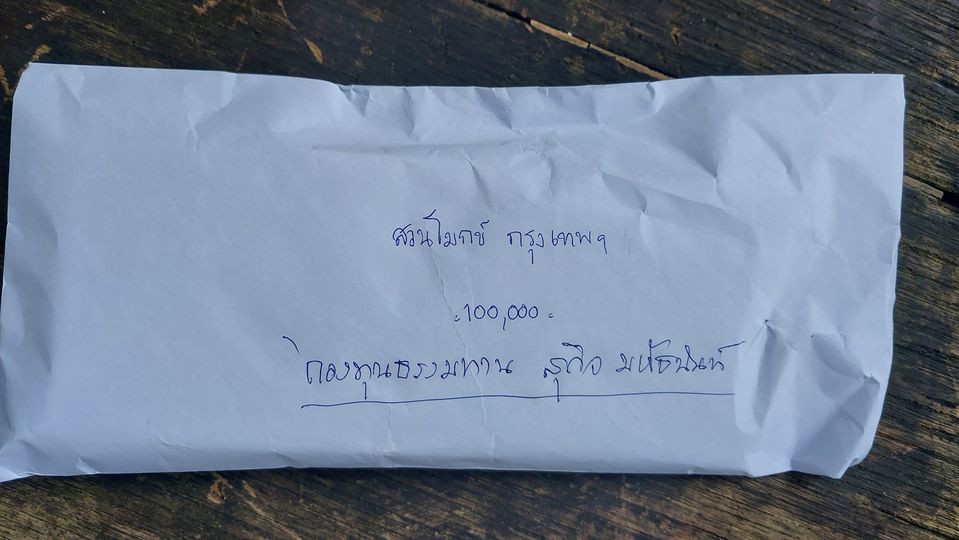 สวนโมกข์ กรุงเทพฯ
-100,000-
กองทุนธรรมทาน สุกิจ มหัธนันท์